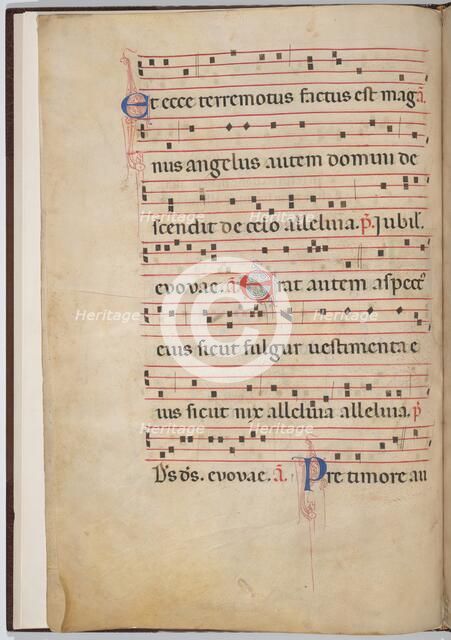 Et ecce terremotus factus est mag. a.
nus angelus autem domini de
scendit de celo alleluia. p. Iubil.
evovae. a. Erat autem aspect9
eius sicut fulgur vestimenta e
ius sicut nix alleluia alleluia. p
Ds ds. evovae. a. Pre timore au
Heritage Heritage
Heritage Heritage
Heritage Heritage
©